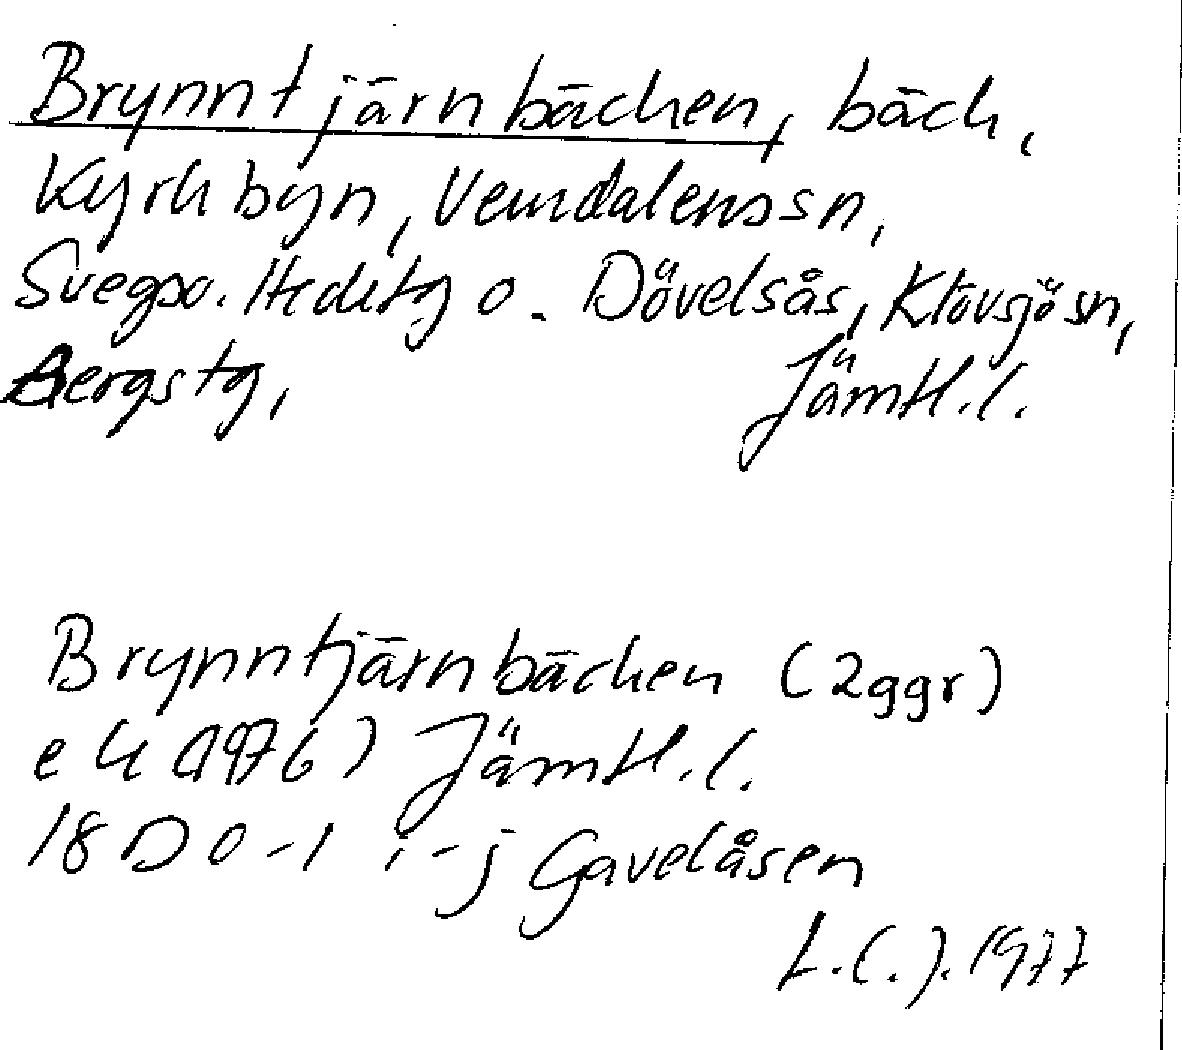 Brynntjärnbäcken, bäck,
Kyrkbyn, Vemdalens sn,
Svegs po. Hede tg o. Dövelsås, Klövsjö sn,
Bergs tg, Jämtl. l.
Brynntjärnbäcken (2ggr)
ek (1976) Jämtl. l.
18 D 0-1 i-j Gavelåsen
1977